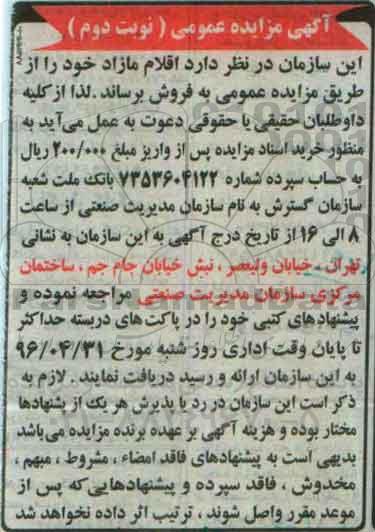 آگهی مزایده عمومی ( نوبت دوم )
این سازمان در نظر دارد اقلام مازاد خود را از
طریق مزایده عمومی به فروش برساند.لذا از کلیه
داوطلبان حقیقی یا حقوقی دعوت به عمل می‌آید به
منظور خرید اسناد مزایده پس از واریز مبلغ ۲۰۰/۰۰۰ ریال
به حساب سپرده شماره ۷۳۵۳۶۰۴۱۲۲ بانک ملت شعبه
سازمان گسترش به نام سازمان مدیریت صنعتی از ساعت
۸ الی ۱۶ از تاریخ درج آگهی به این سازمان به نشانی
تهران ، خیابان ولیعصر ، نبش خیابان جام جم ، ساختمان
مرکزی سازمان مدیریت صنعتی مراجعه نموده و
پیشنهادهای کتبی خود را در پاکت‌های دربسته حداکثر
تا پایان وقت اداری روز شنبه مورخ ۹۶/۰۴/۳۱
به این سازمان ارائه و رسید دریافت نمایند . لازم به
ذکر است این سازمان در رد یا پذیرش هر یک از پشنهادها
مختار بوده و هزینه آگهی بر عهده برنده مزایده می‌باشد
بدیهی است به پیشنهادهای فاقد امضاء ، مشروط ، مبهم ،
مخدوش ، فاقد سپرده و پیشنهادهایی که پس از
موعد مقرر واصل شوند ، ترتیب اثر داده نخواهد شد